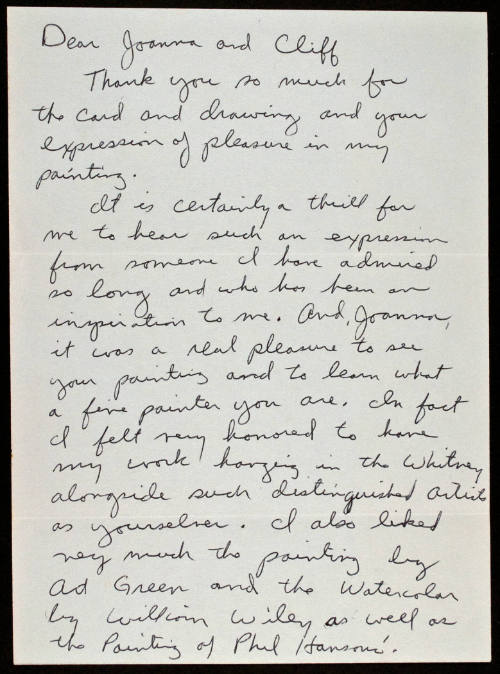 Dear Joanna and Cliff
Thank you so much for
the card and drawing and your
expression of pleasure in my
painting.
It is certainly a thrill for
me to hear such an expression
from someone I have admired
so long and who has been an
inspiration to me. And, Joanna,
it was a real pleasure to see
your painting and to learn what
a fine painter you are. In fact
I felt very honored to have
my work hanging in the Whitney
alongside such distinguished artists
as yourselves. I also liked
very much the painting by
Art Green and the Watercolor
by William Wiley as well as
the Painting of Phil Hanson's.